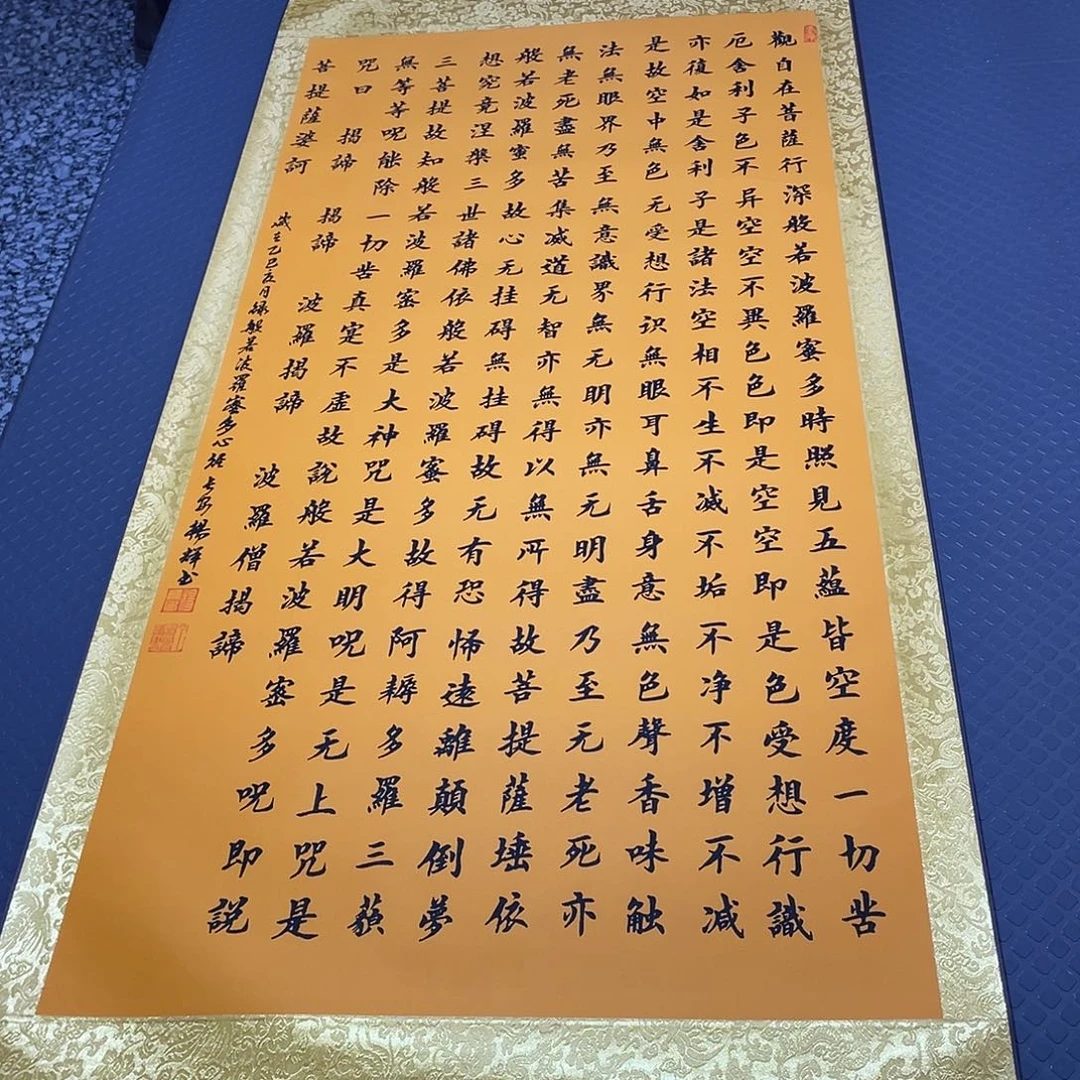 觀自在菩薩行深般若波羅蜜多時照見五蘊皆空度一切苦
厄舍利子色不异空空不異色色即是空空即是色受想行識
亦復如是舍利子是諸法空相不生不滅不垢不净不增不减
是故空中無色无受想行识無眼耳鼻舌身意無色聲香味触
法無眼界乃至無意識界無无明亦無无明盡乃至无老死亦
無老死盡無苦集滅道无智亦無得以無所得故菩提薩埵依
般若波羅蜜多故心无挂碍無挂碍故无有恐怖遠離顛倒夢
想究竟涅槃三世諸佛依般若波羅蜜多故得阿耨多羅三藐
三菩提故知般若波羅蜜多是大神咒是大明呪是无上咒是
無等等呪能除一切苦真寔不虚故説般若波羅蜜多呪即説
咒曰 揭諦 揭諦 波羅揭諦 波羅僧揭諦
菩提薩婆訶
歲在乙巳夏月錄般若波羅蜜多心經長安楊輝書